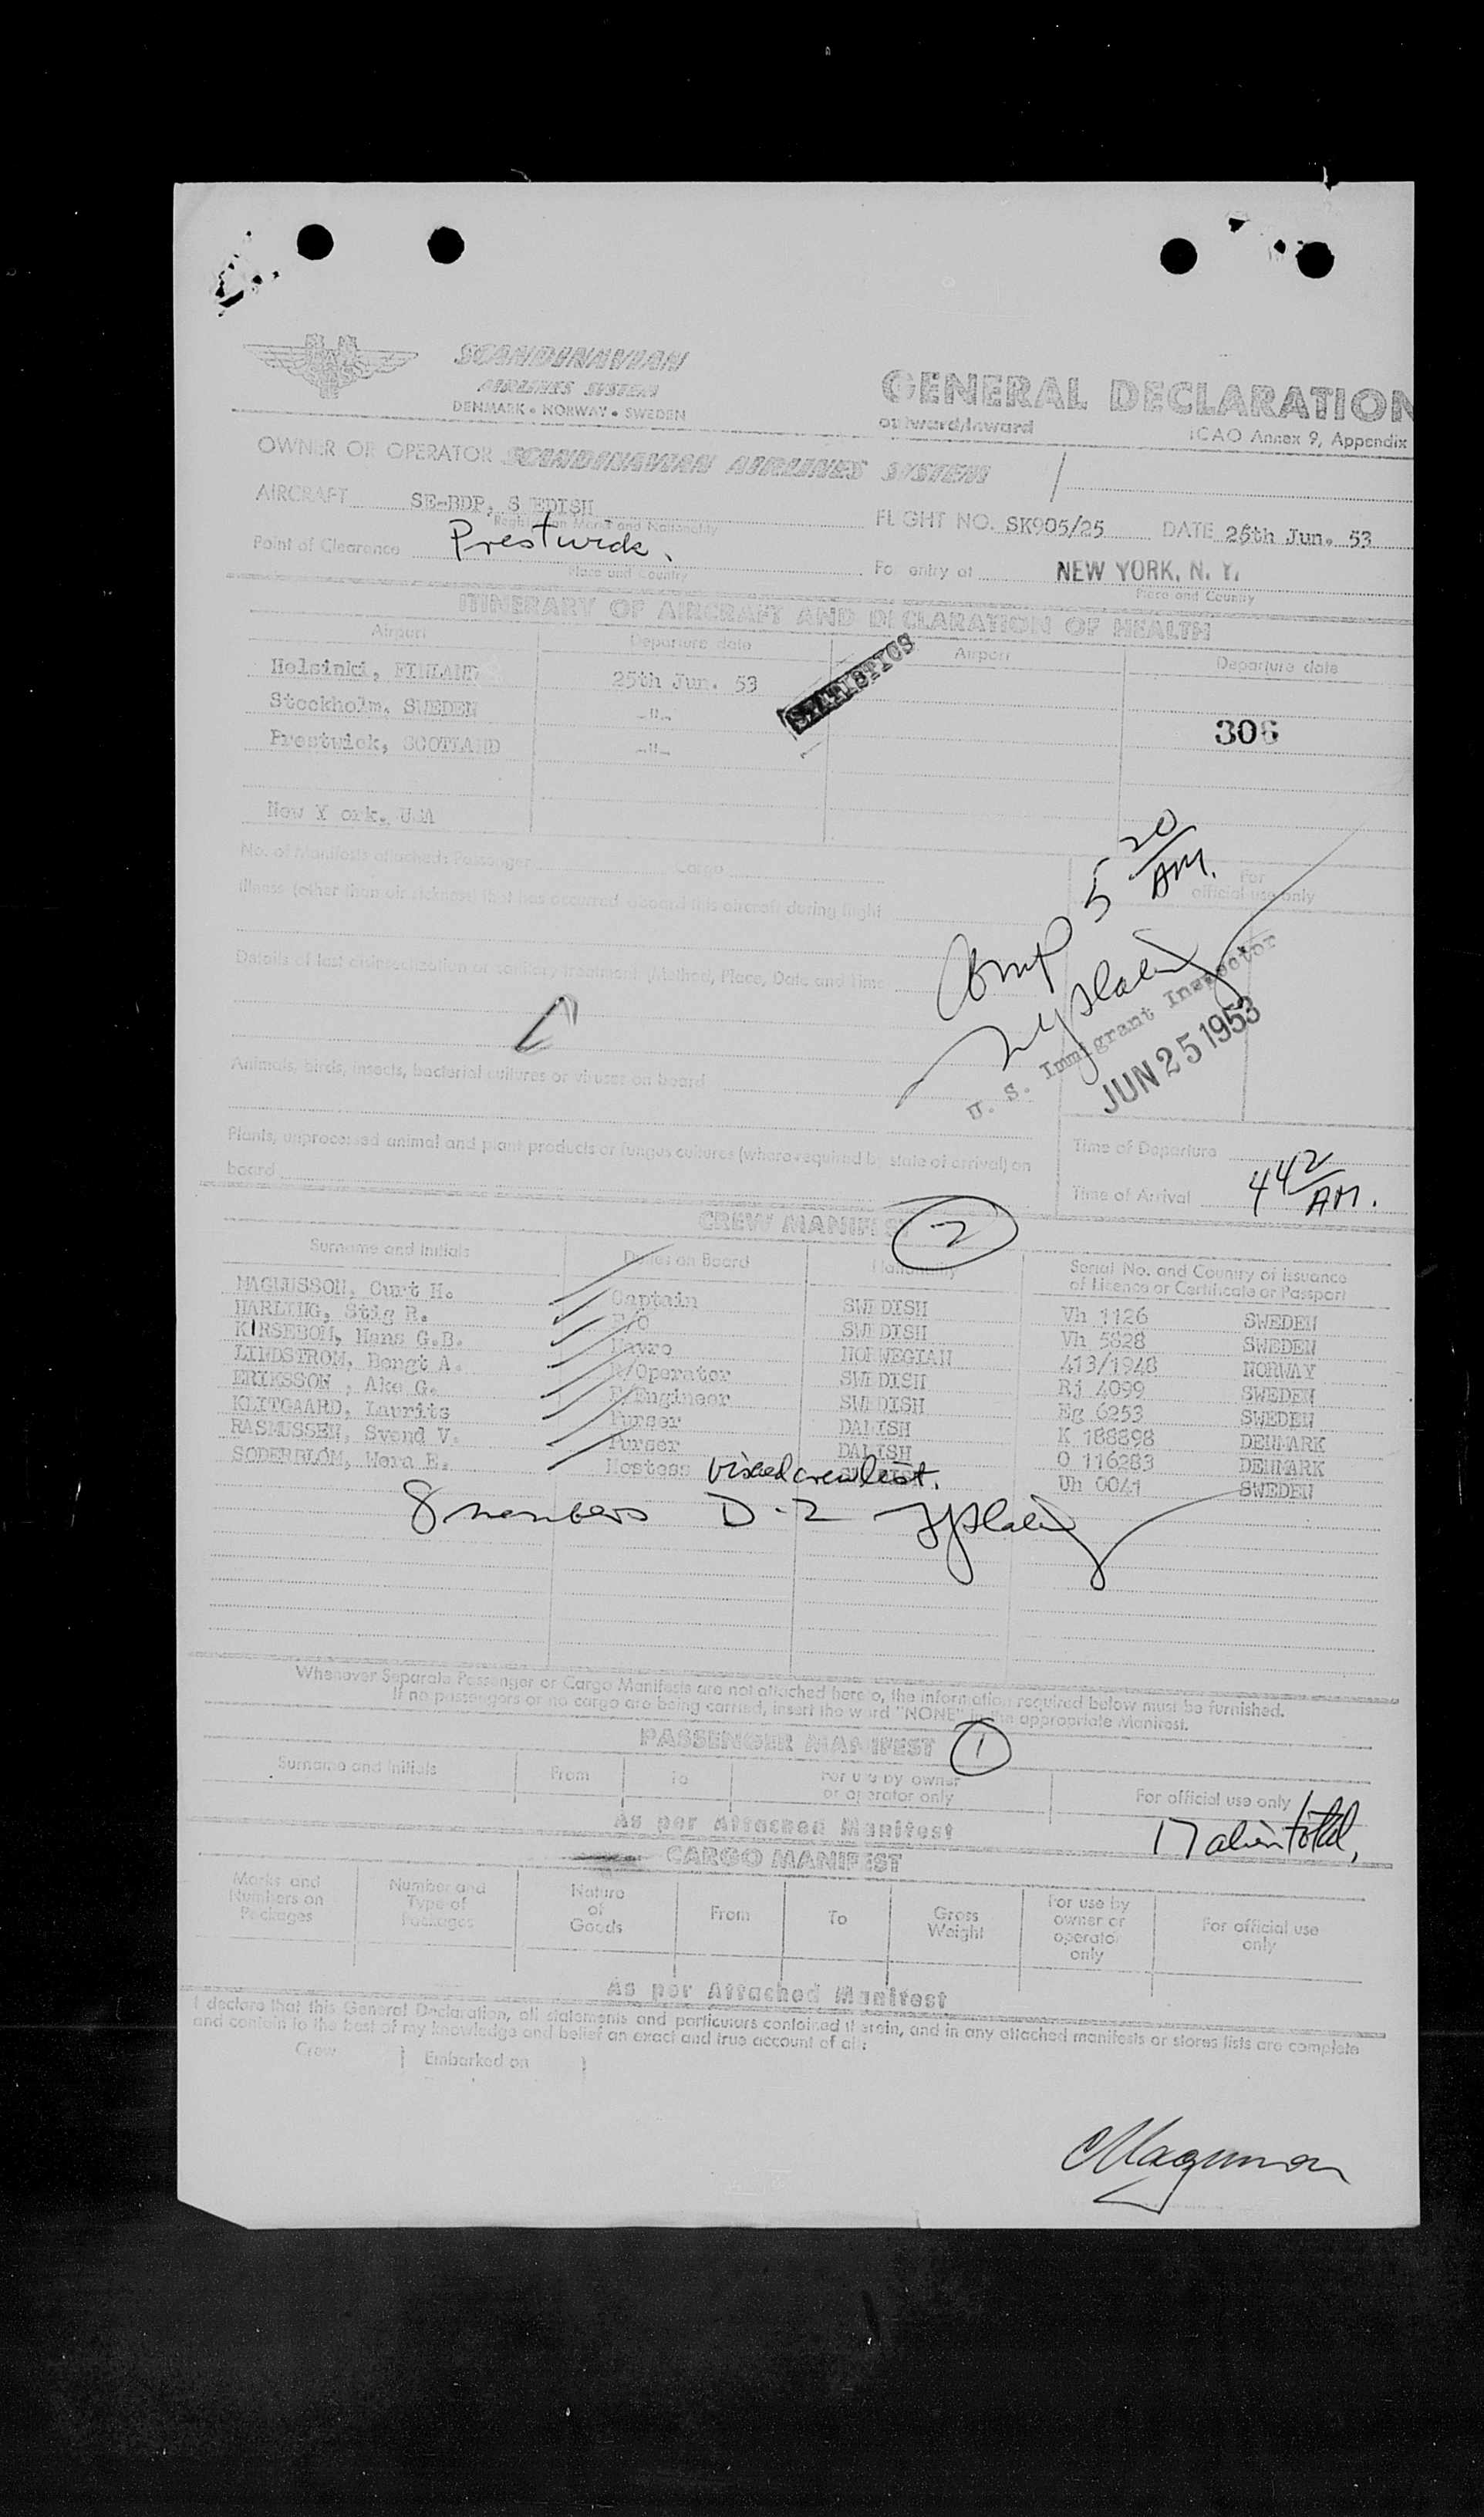 SCANDINAVIAN
AIRLINES SYSTEM
DENMARK • NORWAY • SWEDEN
GENERAL DECLARATION
outward/inward
ICAO Annex 9, Appendix
OWNER OR OPERATOR SCANDINAVIAN AIRLINES SYSTEM
AIRCRAFT SE-BDP, S EDISH
Registration Marks and Nationality
FLIGHT NO. SK905/25 DATE 25th Jun. 53
Point of Clearance Prestwick.
Place and Country
For entry at NEW YORK, N. Y.
Place and Country
ITINERARY OF AIRCRAFT AND DECLARATION OF HEALTH
Airport Departure date Airport Departure date
Helsinki, FINLAND 25th Jun. 53
STATISTICS
Stockholm, SWEDEN -"-
306
Prestwick, SCOTLAND -"-
New Y ork, USA
No. of Manifests attached: Passenger Cargo
For
official use only
Illness (other than air sickness) that has occurred aboard this aircraft during flight
Comp 5 20 AM.
Details of last disinsectization or sanitary treatment (Method, Place, Date and Time
U. S. Immigrant Inspector
JUN 25 1953
Animals, birds, insects, bacterial cultures or viruses on board
Plants, unprocessed animal and plant products or fungus cultures (where required by state of arrival) on
board
Time of Departure
Time of Arrival 4 42 AM.
CREW MANIFEST 2
Surname and Initials Duties on Board Nationality Serial No. and Country of issuance
of Licence or Certificate or Passport
MAGNUSSON, Curt H. Captain SWEDISH Vh 1126 SWEDEN
HARLING, Stig R. F/O SWEDISH Vh 5828 SWEDEN
KIRSEBOM, Hans G.B. Navro NORWEGIAN 413/1948 NORWAY
LINDSTROM, Bengt A. R/Operator SWEDISH Rj 4099 SWEDEN
ERIKSSON, Ake G. F/Engineer SWEDISH Eg 6253 SWEDEN
KLITGAARD, Laurits Purser DANISH K 188898 DENMARK
RASMUSSEN, Svend V. Purser DANISH O 116283 DENMARK
SODERBLOM, Wera E. Hostess Uh 0041 SWEDEN
visaed crew list.
8 members D-2
Whenever Separate Passenger or Cargo Manifests are not attached hereto, the information required below must be furnished.
If no passengers or no cargo are being carried, insert the word "NONE" in the appropriate Manifest.
PASSENGER MANIFEST 1
Surname and Initials From To For use by owner
or operator only For official use only
As per Attached Manifest
17 alien total,
CARGO MANIFEST
Marks and
Numbers on
Packages
Number and
Type of
Packages
Nature
of
Goods
From
To
Gross
Weight
For use by
owner or
operator
only
For official use
only
As per Attached Manifest
I declare that this General Declaration, all statements and particulars contained therein, and in any attached manifests or stores lists are complete
and contain to the best of my knowledge and belief an exact and true account of all:
Crew } Embarked on }
CMagnusson